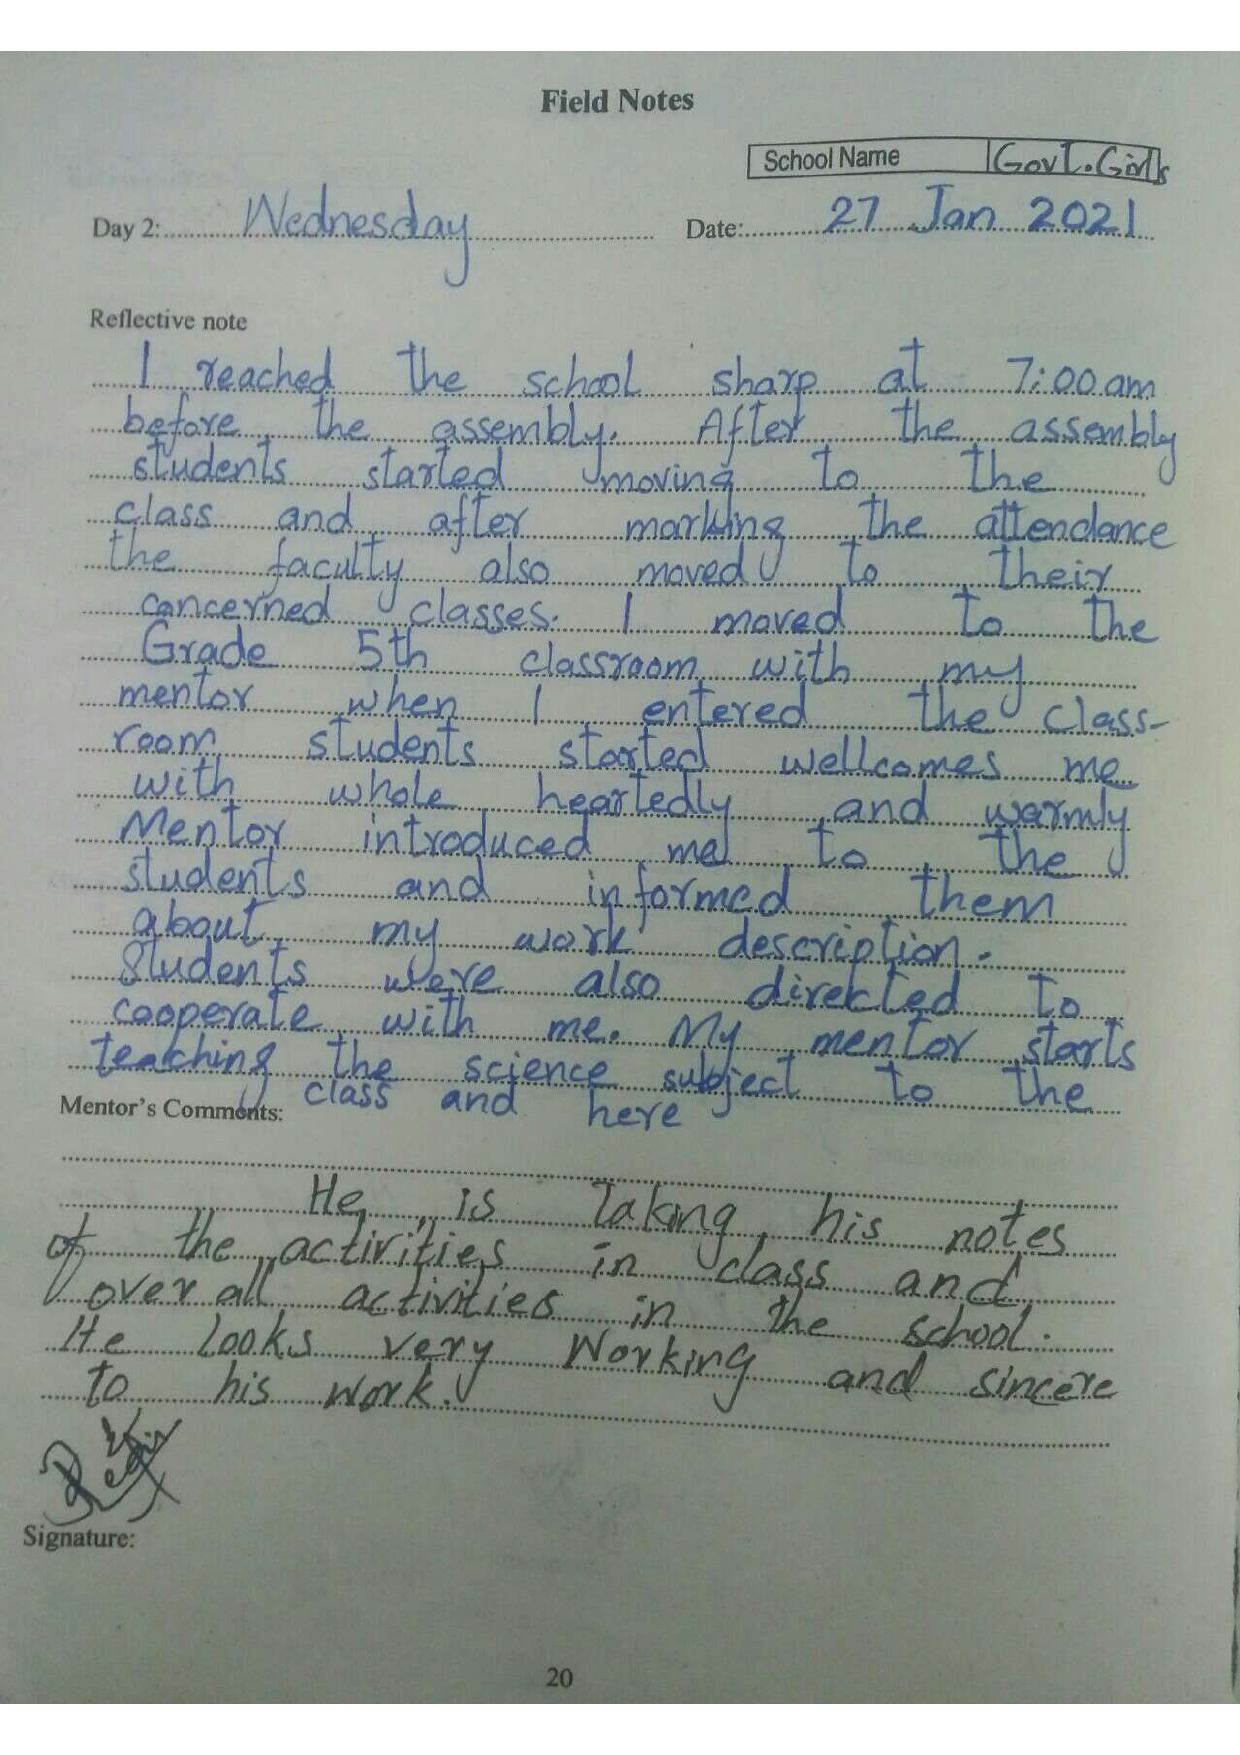 Field Notes
School Name Govt. Girls
Day 2: Wednesday Date: 27 Jan 2021
Reflective note
I reached the school sharp at 7:00 am
before the assembly. After the assembly
students started moving to the
class and after marking the attendance
the faculty also moved to their
concerned classes. I moved to the
Grade 5th classroom with my
mentor when I entered the class-
room students started wellcomes me
with whole heartedly and warmly
Mentor introduced me to the
students and informed them
about my work description.
Students were also directed to
cooperate with me. My mentor starts
teaching the science subject to the
class and here
Mentor's Comments:
He is Taking his notes
of the activities in class and
over all activities in the school.
He Looks very Working and sincere
to his work.
Signature:
20